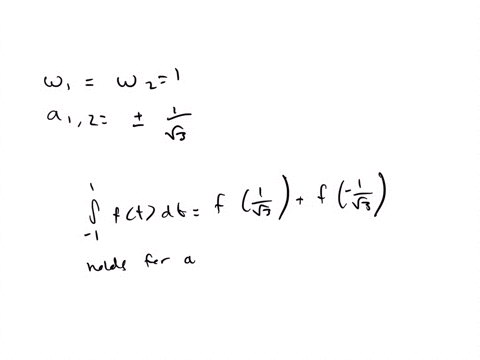 ω₁ = ω₂=1
a₁,₂= ± 1/√3
∫₋₁¹ f(t) dt = f (1/√3) + f (-1/√3)
holds for a